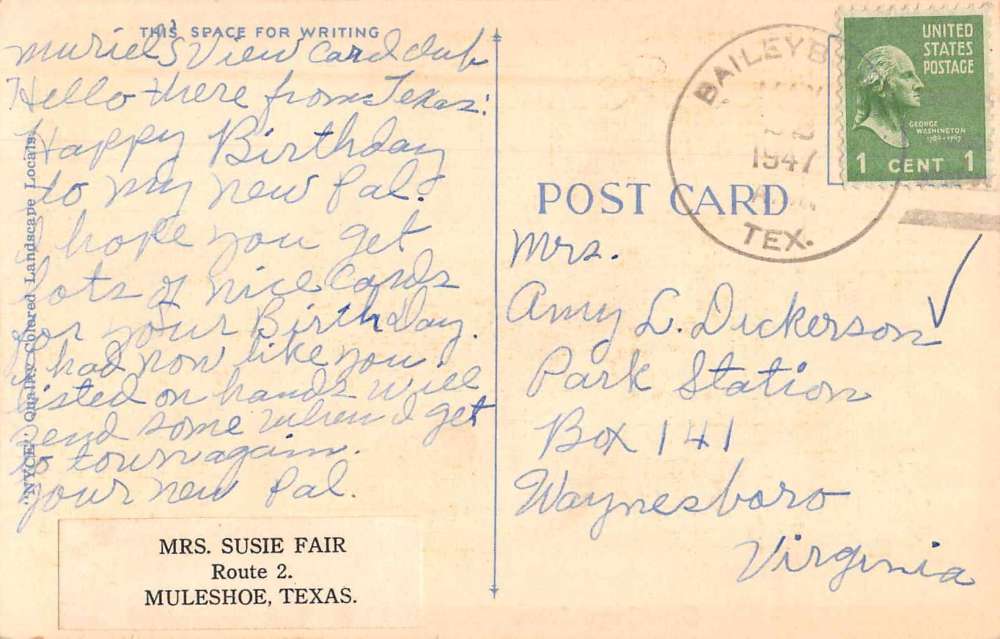 THIS SPACE FOR WRITING
Muriel's View Card Club
Hello there from Texas:
Happy Birthday
to my new Pal.
I hope you get
lots of nice Cards
for your Birthday.
I had non like you
listed on hand will
send some when I get
to town again.
Your new Pal.
MRS. SUSIE FAIR
Route 2.
MULESHOE, TEXAS.
"NYCE" Quality Colored Landscape Locals
POST CARD
BAILEYB
1947
TEX.
UNITED
STATES
POSTAGE
GEORGE
WASHINGTON
1789-1797
1 CENT 1
Mrs.
Amy L. Dickerson
Park Station
Box 141
Waynesboro
Virginia